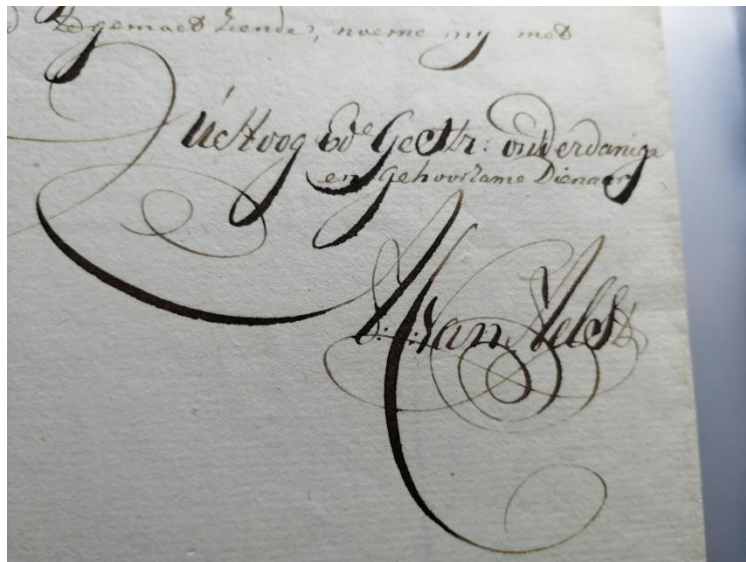 te gemoet ziende, noeme my met
UwHoog Ed: Gestr: onderdanige
en gehoorsame Dienaar
van Velst